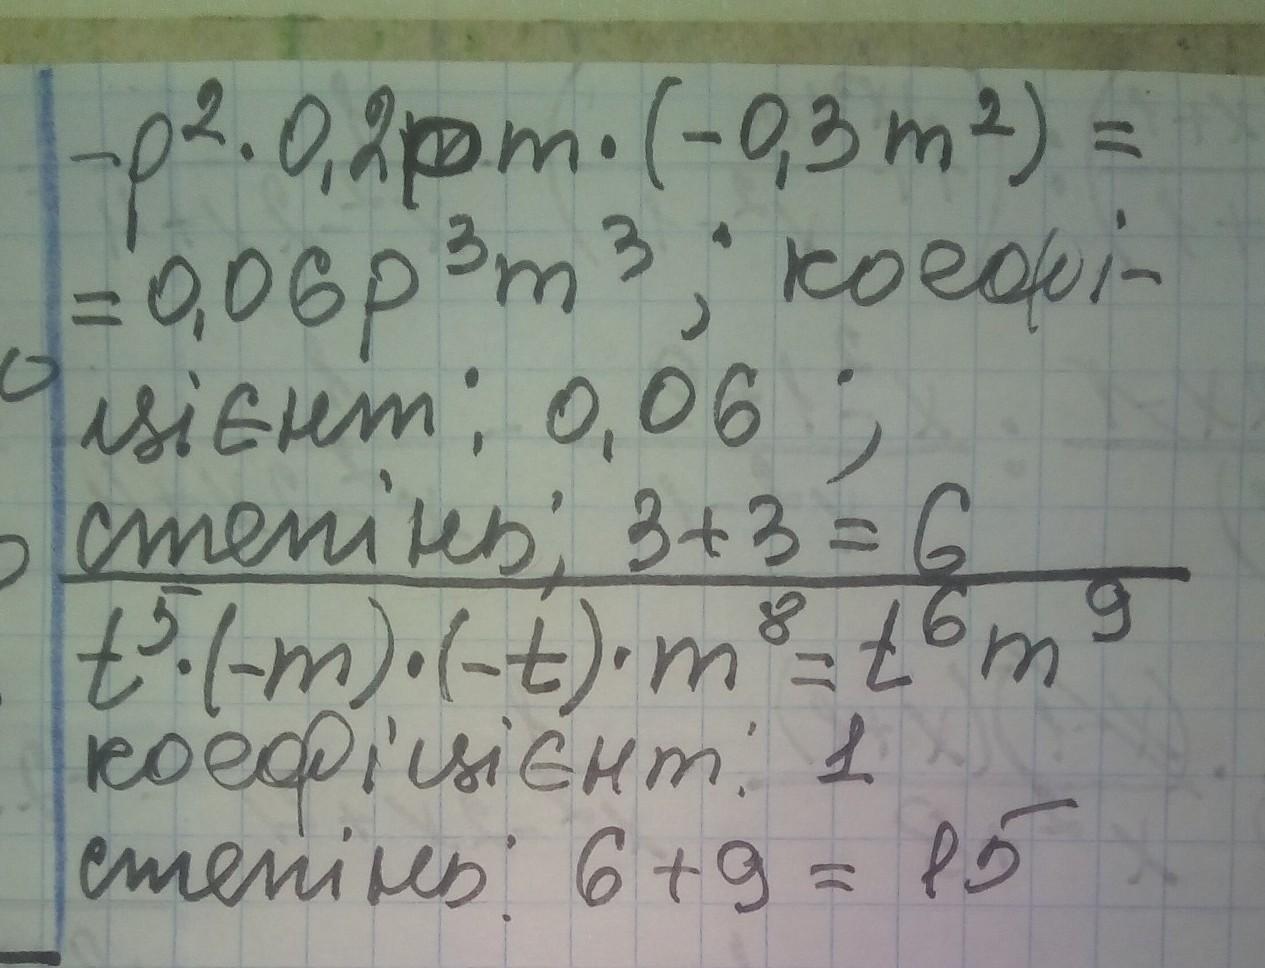 -p²·0,2pm·(-0,3m²)=
=0,06p³m³; коефі-
цієнт: 0,06;
степінь: 3+3=6
t⁵·(-m)·(-t)·m⁸=t⁶m⁹
коефіцієнт: 1
степінь: 6+9=15